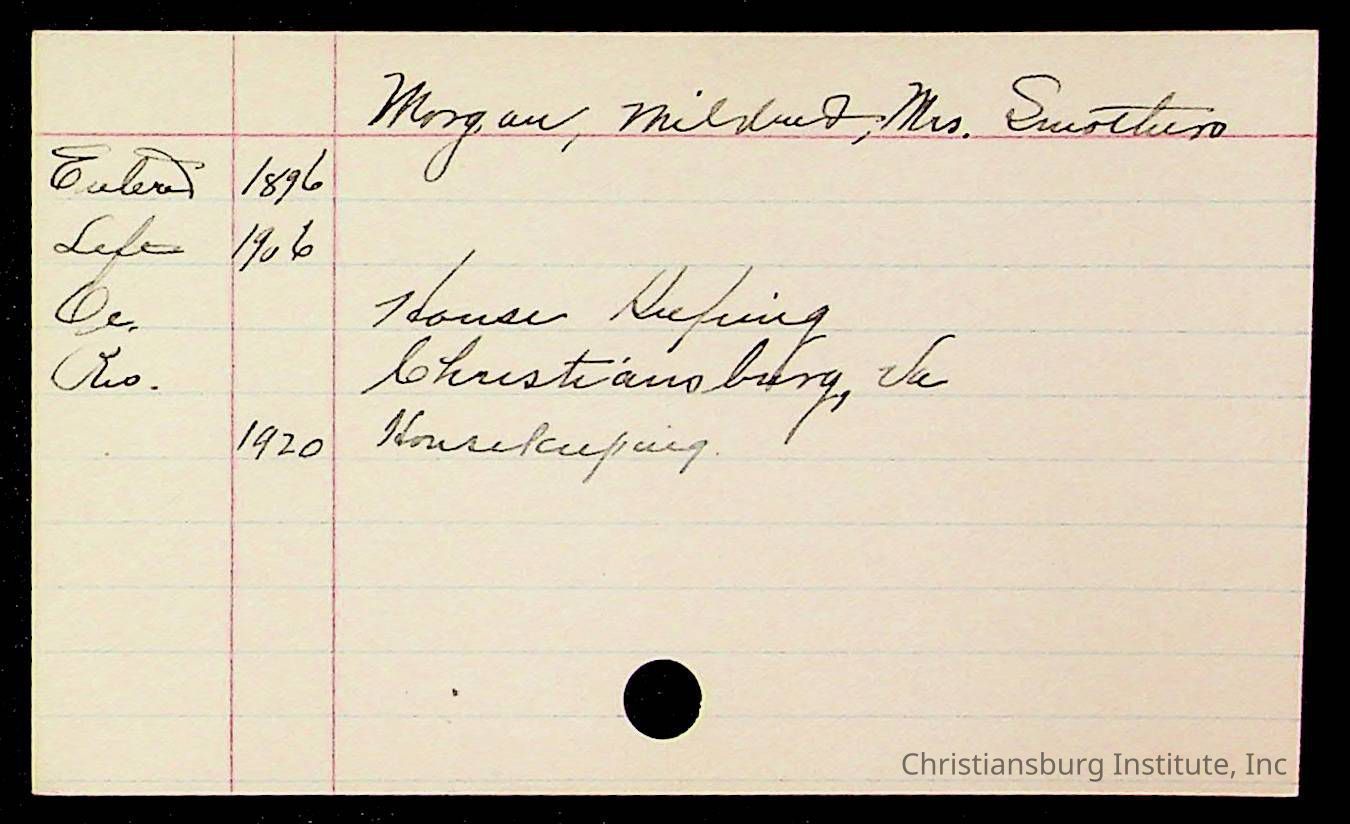 Morgan, Mildred, Mrs. Smothers
Entered 1896
Left 1906
Oc. House Keeping
Res. Christiansburg, Va
1920 Housekeeping.
Christiansburg Institute, Inc